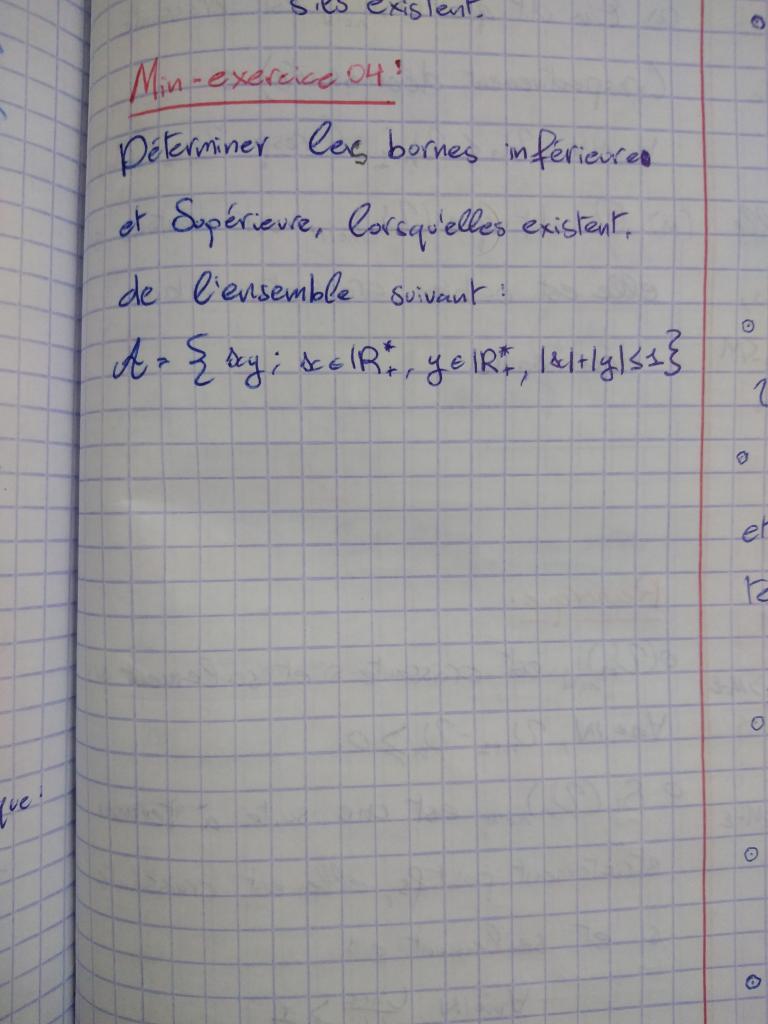 s'ils existent.
Min-exercice 04:
Déterminer les bornes inférieure
et Supérieure, lorsqu'elles existent,
de l'ensemble suivant :
A = { xy ; x ∈ IR*+, y ∈ IR*+, |x|+|y| ≤ 1 }
et
que :